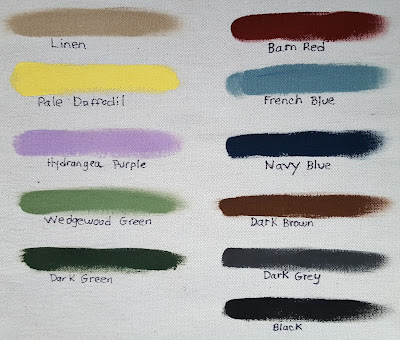 Linen
Pale Daffodil
Hydrangea Purple
Wedgewood Green
Dark Green
Barn Red
French Blue
Navy Blue
Dark Brown
Dark Grey
Black